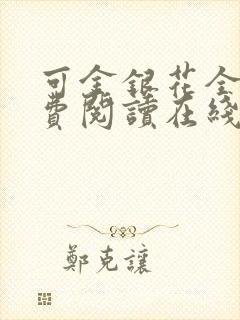 可金銀花全
費閱讀在綫
鄭克讓